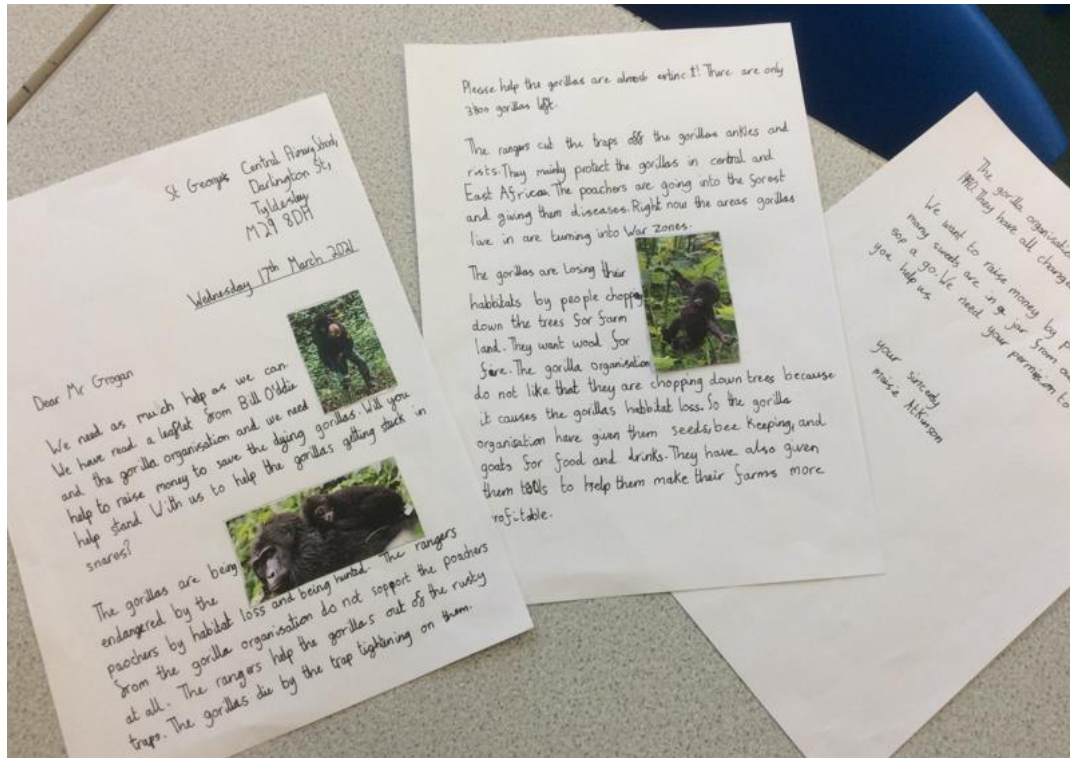 St Georges Central Primary School,
Darlington St,
Tyldesley
M29 8DH
Wednesday 17th March 2021
Dear Mr Grogan
We need as much help as we can.
We have read a leaflet from Bill O'ddie
and the gorilla organisation and we need
help to raise money to save the dying gorillas. Will you
help stand with us to help the gorillas getting stuck in
snares?
The gorillas are being
endangered by the
paochers by habitat loss and being hunted. The rangers
from the gorilla organisation do not sopport the poachers
at all. The rangers help the gorillas out of the rusty
traps. The gorillas die by the trap tightening on them.
Please help the gorillas are almost extinct! There are only
3800 gorillas left.
The rangers cut the traps off the gorillas ankles and
rists. They mainly protect the gorillas in central and
East Africa. The poachers are going into the forest
and giving them diseases. Right now the areas gorillas
live in are turning into War zones.
The gorillas are Losing their
habbitats by people chopping
down the trees for farm
land. They want wood for
fire. The gorilla organisation
do not like that they are chopping down trees because
it causes the gorillas habbitat loss. So the gorilla
organisation have given them seeds, bee keeping, and
goats for food and drinks. They have also given
them tools to help them make their farms more
rofitable.
The gorilla organisation
They have all change
We want to raise money by p
many sweets are in a jar from ou
50p a go. We need your permission to
you help us.
your sincerely
maisie Atkinson